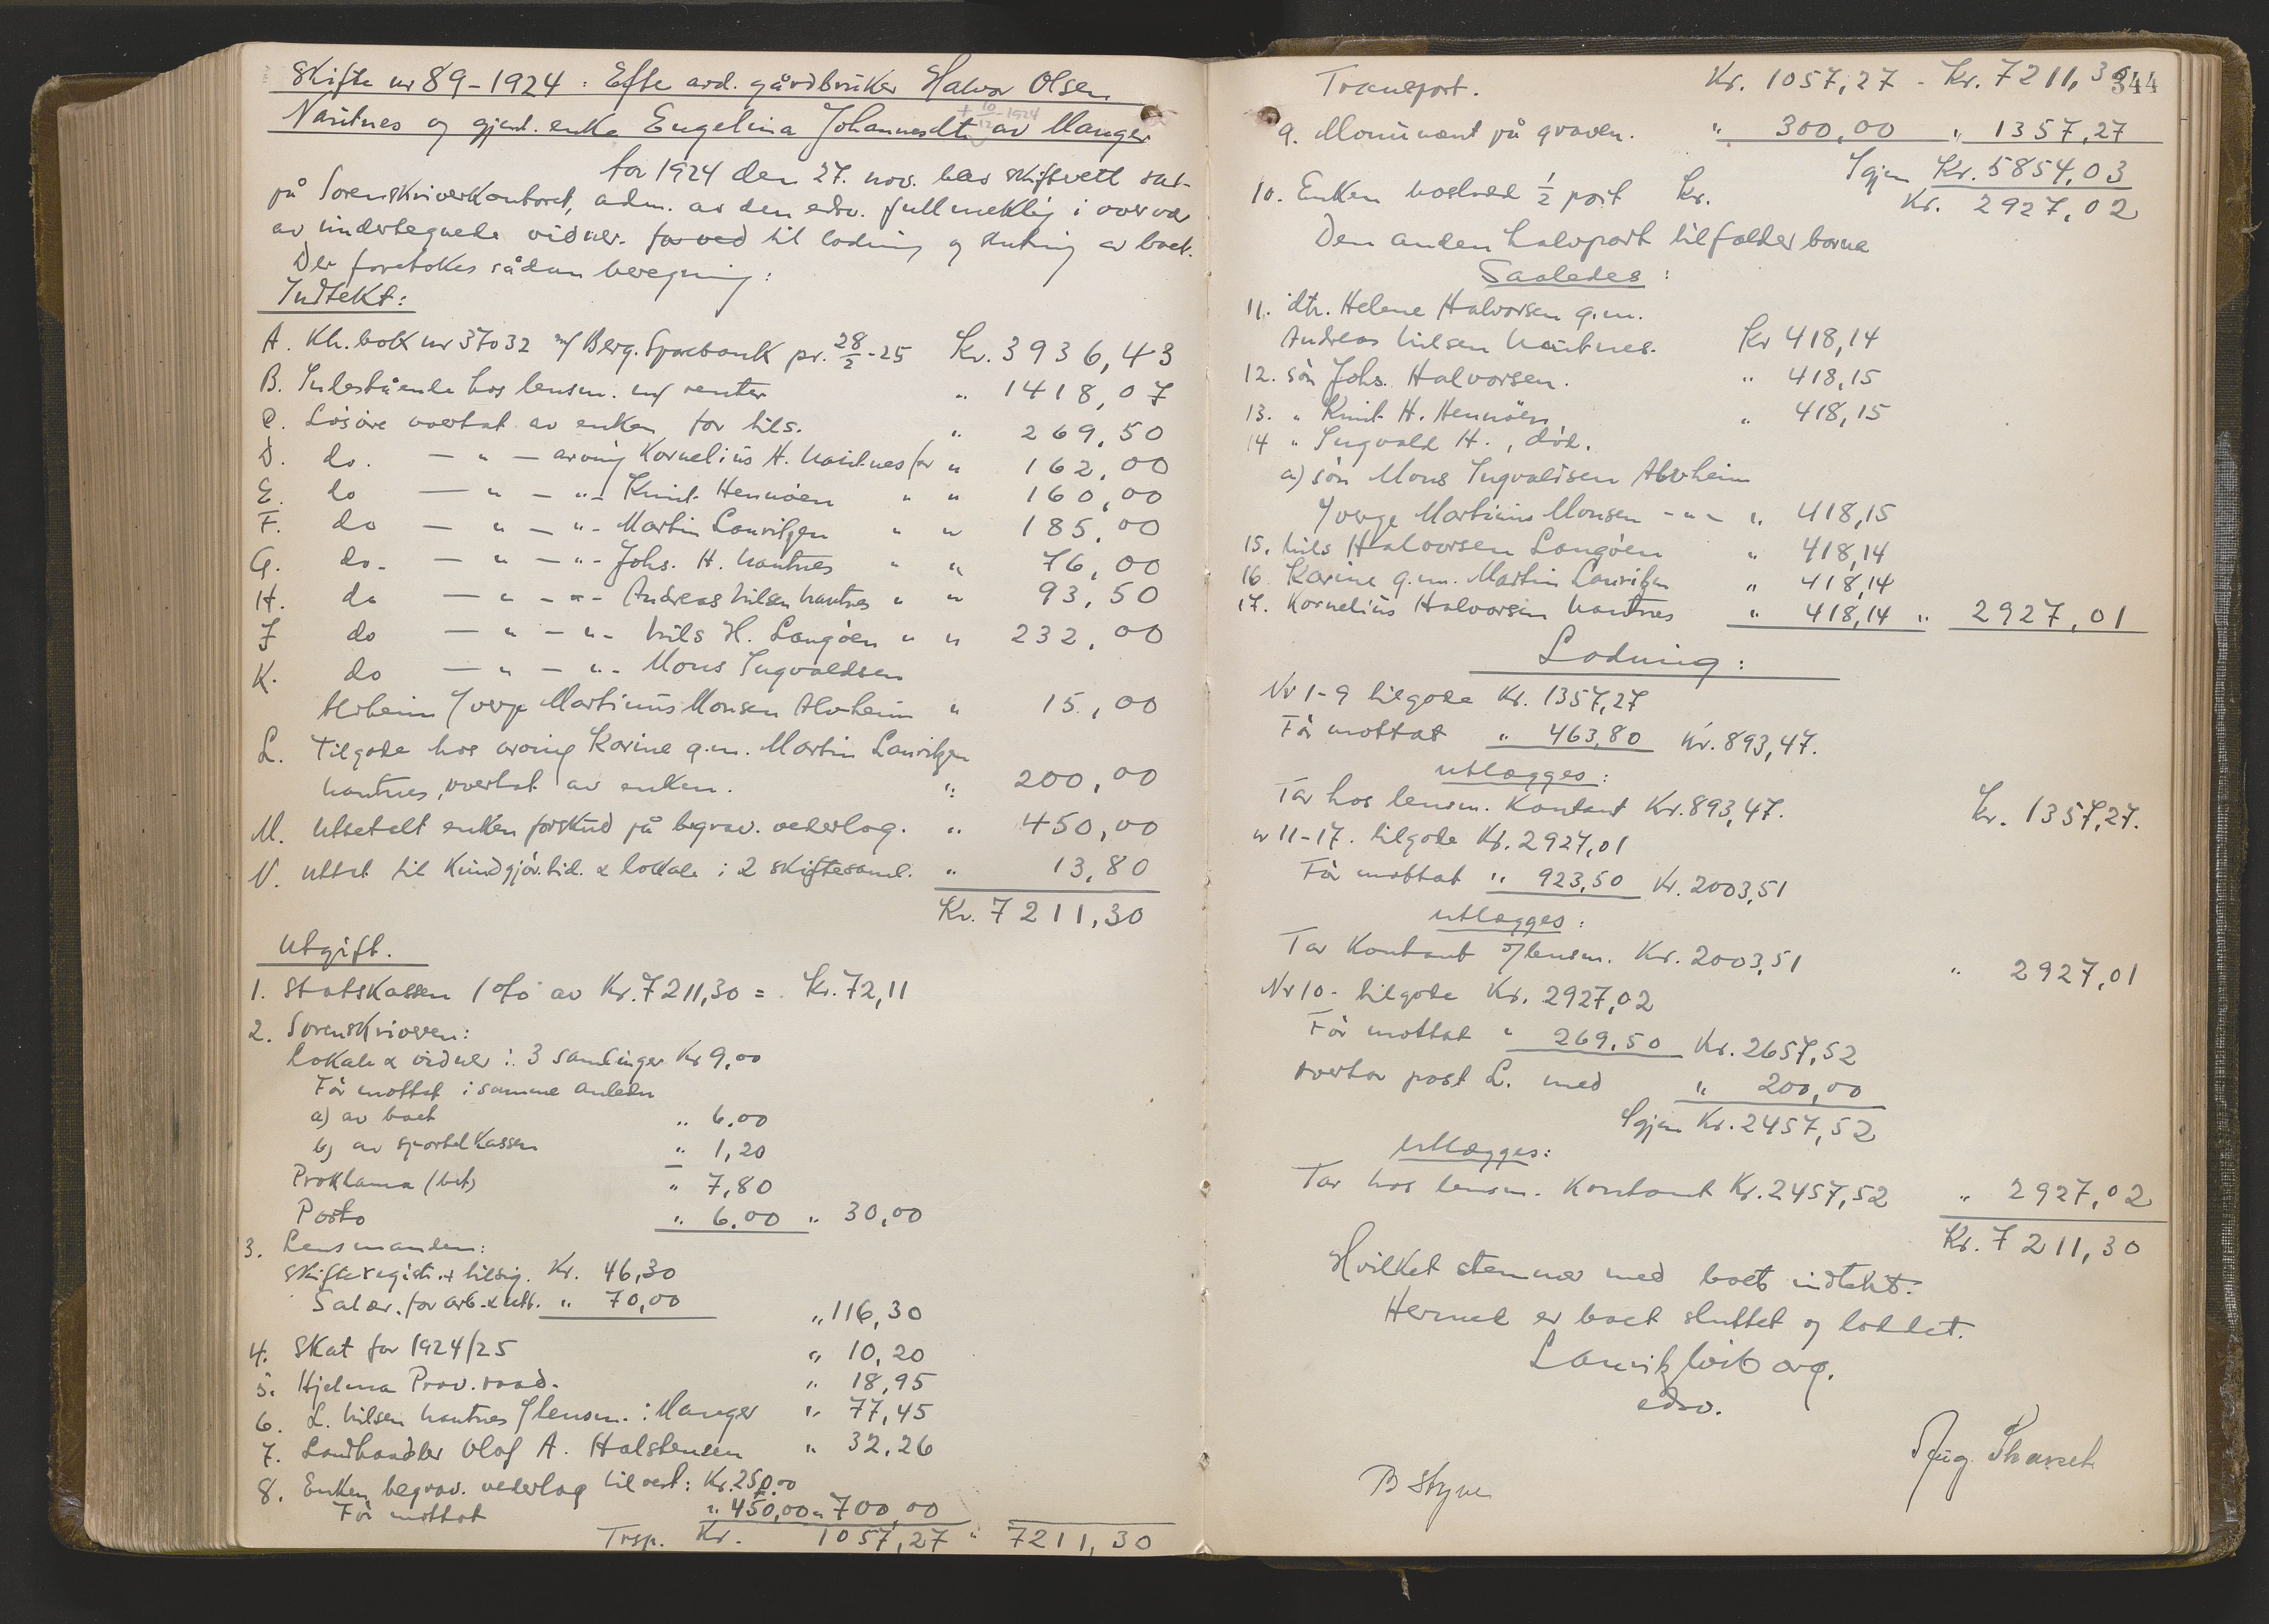 Skifte nr 89-1924: Efter avd. gårdbruker Halvor Olsen
Nautnes og gjenl. enke Engelina Johannesdtr. av Manger
+ 10/12-1924
År 1924 den 27. nov. blev skifterett sat
på Sorenskriverkontoret, adm. av den edsv. fullmektig i overvær
av undertegnede vidner. for ved til lodning og slutning av boet.
Der foretokes sådan beregning:
Indtekt:
A. Kh. bok nr 37032 m/ Berg. Sparebank pr. 28/2-25 Kr. 3936,43
B. Indestående hos lensm. m/ renter " 1418,07
C. Lösöre overtat av enken for tils. " 269,50
D. do. — " — arving Kornelius H. Nautnes for " 162,00
E. do — " — " - Knut Hennöen " " 160,00
F. do — " — " - Martin Lauritzen " " 185,00
G. do. — " — " - Johs. H. Nautnes " " 76,00
H. do — " — " - Andreas Nilsen Nautnes " " 93,50
J do — " — " - Nils H. Langöen " " 232,00
K. do — " — " - Mons Ingvaldsen
Alvheim v/ verge Martinius Monsen Alvheim " 15,00
L. Tilgode hos arving Karine g.m. Martin Lauritzen
Nautnes, overtat av enken. " 200,00
M. Utbetalt enken forskud på begrav. vederlag. " 450,00
N. Uttat til kundgjör. tid. & lokale i 2 skiftesaml. " 13,80
Kr. 7211,30
Utgift.
1. Statskassen 1 o/o av Kr. 7211,30 = Kr. 72,11
2. Sorenskriveren:
Lokale & vidner i 3 samlinger Kr 9,00
Får mottat i samme anledn
a) av boet " 6,00
b) av sportelkassen " 1,20
Proklama (bet) " 7,80
Porto " 6,00 " 30,00
3. Lensmanden:
Skifteregistr. + tilsig. Kr. 46,30
Salær. for arb. & utl. " 70,00 " 116,30
4. Skat for 1924/25 " 10,20
5. Hjelma Prov. raad. " 18,95
6. L. Nilsen Nautnes v/ lensm. i Manger " 77,45
7. Landhandler Olaf A. Halstensen " 32,26
8. Enken begrav. vederlag til rest: Kr. 250,00
Får mottat " 450,00 " 700,00
Trsp. Kr. 1057,27 " 7211,30
344
Transport. Kr. 1057,27 - Kr. 7211,30
9. Monument på graven. " 300,00 " 1357,27
Igjen Kr. 5854,03
10. Enken boslod 1/2 part Kr. Kr. 2927,02
Den anden halvpart tilfalder barna
Saaledes:
11. dtr. Helene Halvorsen g.m.
Andreas Nilsen Nautnes. Kr 418,14
12. sön Johs. Halvorsen. " 418,15
13. " Knut H. Hennöen " 418,15
14 " Ingvald H., död.
a) sön Mons Ingvaldsen Alvheim
v/ verge Martinius Monsen - " - " 418,15
15. Nils Halvorsen Langöen " 418,14
16. Karine g.m. Martin Lauritzen " 418,14
17. Kornelius Halvorsen Nautnes " 418,14 " 2927,01
Lodning:
Nr 1-9 tilgode Kr. 1357,27
Får mottat " 463,80 Kr. 893,47.
utlægges:
Tar hos lensm. kontant Kr. 893,47. Kr. 1357,27.
nr 11-17. tilgode Kr. 2927,01
Får mottat " 923,50 Kr. 2003,51
utlægges:
Tar kontant h/ lensm. Kr. 2003,51 " 2927,01
Nr 10- tilgode Kr. 2927,02
Får mottat " 269,50 Kr. 2657,52
overtar post L. med " 200,00
Igjen Kr. 2457,52
Utlægges:
Tar hos lensm. kontant Kr. 2457,52 " 2927,02
Kr. 7211,30
Hvilket stemmer med boets indtekt.
Hermed er boet sluttet og loddet.
edsv.
B Styve